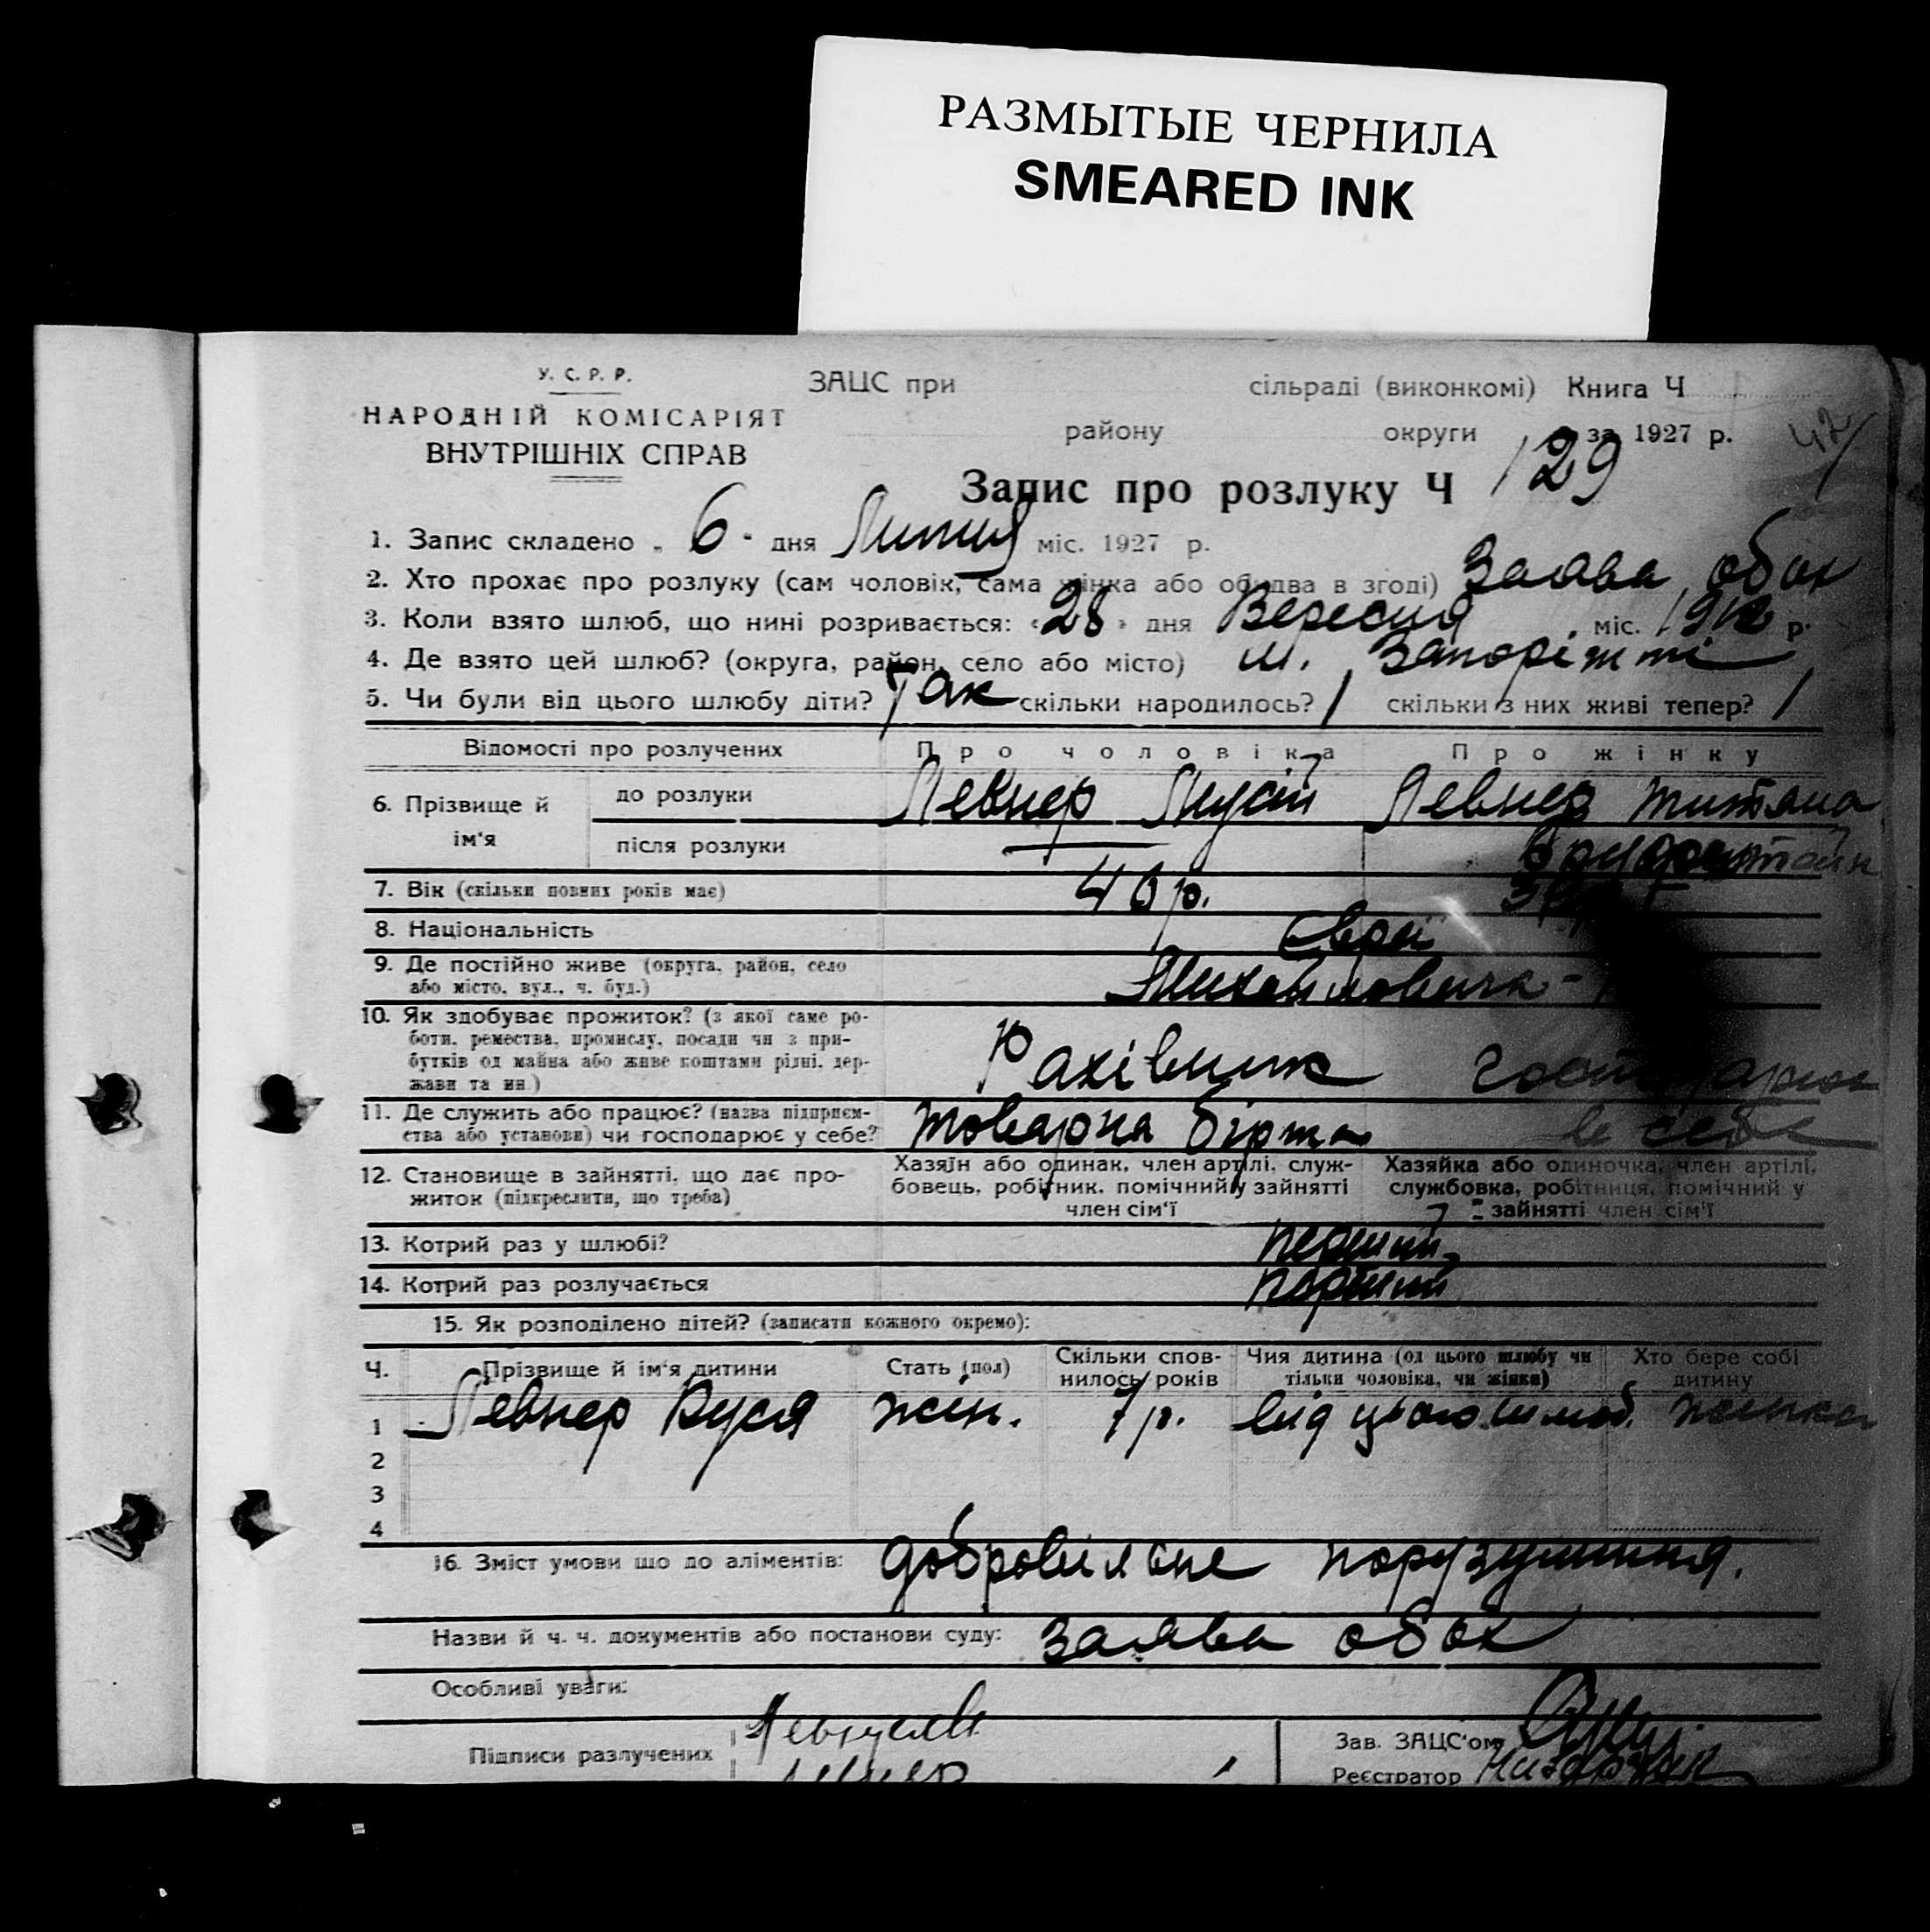 РАЗМЫТЫЕ ЧЕРНИЛА
SMEARED INK
У. С. Р. Р.
НАРОДНІЙ КОМІСАРІЯТ
ВНУТРІШНІХ СПРАВ
ЗАЦС при сільраді (виконкомі) Книга Ч
району округи за 1927 р. 42
Запис про розлуку Ч 129
1. Запис складено „ 6 " дня Липня міс. 1927 р.
2. Хто прохає про розлуку (сам чоловік, сама жінка або обидва в згоді) Заява обох
3. Коли взято шлюб, що нині розривається: « 28 » дня Вересня міс. р.
4. Де взято цей шлюб? (округа, район, село або місто) м. Запоріжжі
5. Чи були від цього шлюбу діти? Так скільки народилось? 1 скільки з них живі тепер? 1
Відомості про розлучених Про чоловіка Про жінку
6. Прізвище й ім'я до розлуки Левнер Левнер
після розлуки
7. Вік (скільки повних років має) 40 р.
8. Національність Євреї
9. Де постійно живе (округа, район, село
або місто, вул., ч. буд.)
10. Як здобуває прожиток? (з якої саме ро-
боти, ремества, промислу, посади чи з при-
бутків од майна або живе коштами рідні, дер-
жави та ин.) Рахівник
11. Де служить або працює? (назва підприєм-
ства або установи) чи господарює у себе? Товарна біржа в себе
12. Становище в зайнятті, що дає про-
житок (підкреслити, що треба)
Хазяїн або одинак, член артілі, служ-
бовець, робітник, помічний у зайнятті
член сім'ї
Хазяйка або одиночка, член артілі,
службовка, робітниця, помічний у
зайнятті член сім'ї
13. Котрий раз у шлюбі? перший
14. Котрий раз розлучається перший
15. Як розподілено дітей? (записати кожного окремо):
Ч. Прізвище й ім'я дитини Стать (пол) Скільки спов-
нилось років Чия дитина (од цього шлюбу чи
тільки чоловіка, чи жінки) Хто бере собі
дитину
1 Левнер Буся жін. 7 р. від цього шлюб. жінка
2
3
4
16. Зміст умови що до аліментів: добровільне порозуміння.
Назви й ч. ч. документів або постанови суду: Заява обох
Особливі уваги:
Підписи разлучених
Зав. ЗАЦС'ом
Реєстратор